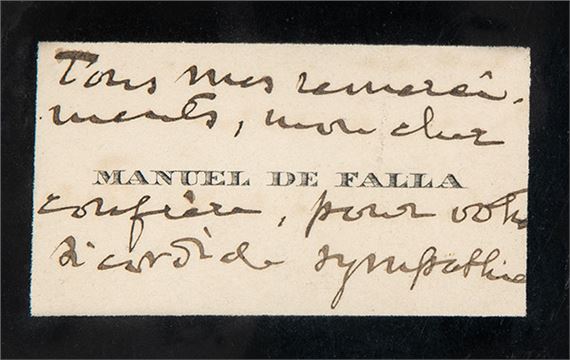 Tous mes remercî-
ments, mon cher
MANUEL DE FALLA
confrère, pour votre
si cordiale sympathie